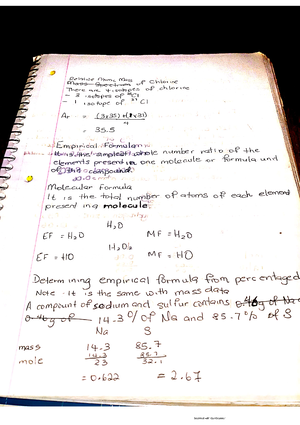 Relative Atomic Mass
Mass Spectrum of Chlorine
There are 4 isotopes of chlorine
- 3 isotopes of 35Cl
- 1 isotope of 37Cl
Ar = (3x35)+(1x37)
4
= 35.5
Empirical Formula
whole number ratio of the
elements present in one molecule or formula unit
of
Molecular Formula
It is the total number of atoms of each element
present in a molecule
H2O
EF = H2O MF = H2O
EF = HO MF = HO
Determining empirical formula from percentages
Note - It is the same with mass data
A compound of sodium and sulfur contains 0.46g of Na
0.46g of 14.3% of Na and 85.7% of S
Na S
mass 14.3 85.7
mole 14.3 85.7
23 32.1
= 0.622 = 2.67